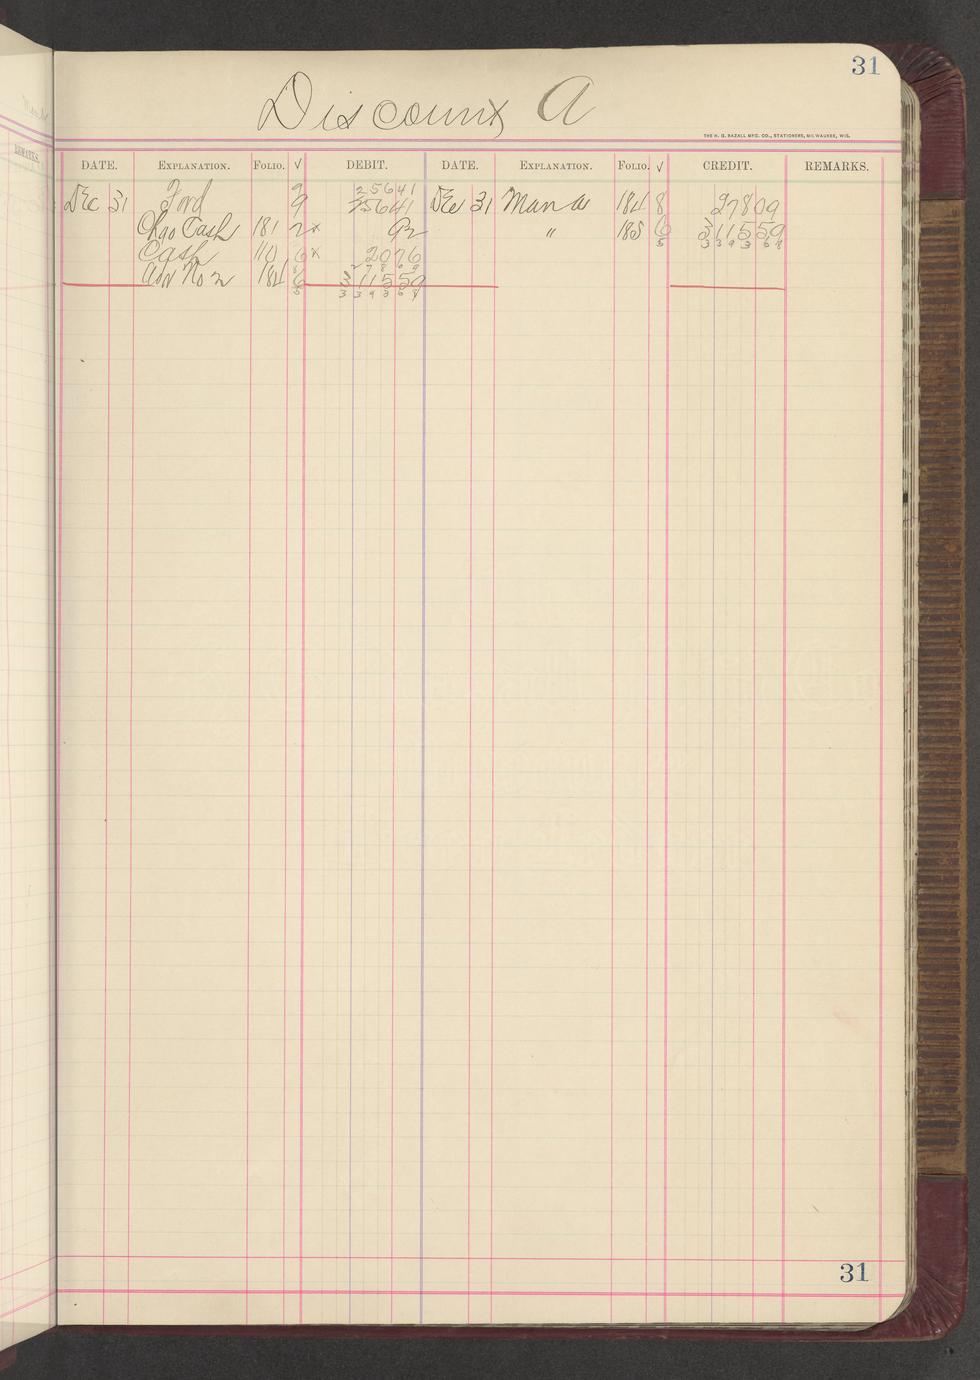 31
Discount A
THE H. G. RAZALL MFG. CO., STATIONERS, MILWAUKEE, WIS.
REMARKS.
DATE. EXPLANATION. FOLIO. √ DEBIT. DATE. EXPLANATION. FOLIO. √ CREDIT. REMARKS.
9 25641
Dec 31 Ford 9 25641 Dec 31 Man a 184 8 27809
Chgo Cash 181 2x 92 " 185 6 311559
5 339368
Cash 110 6x 2076
27809
No 2 184 6 311559
5 339368
31